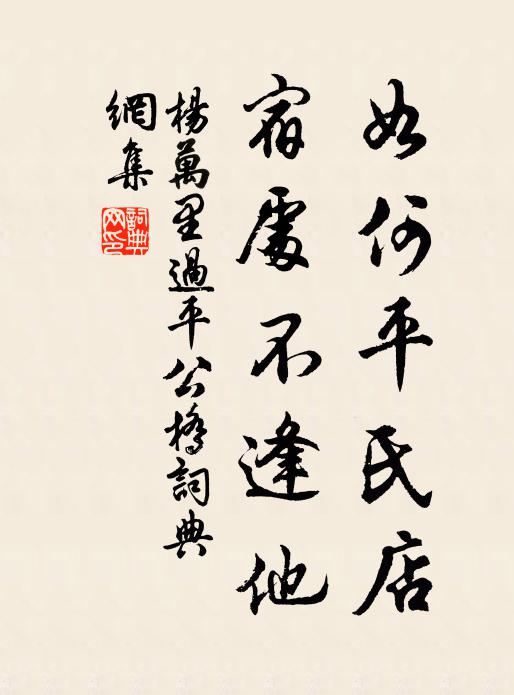 如何平民店
宿處不逢他
楊萬里過平公橋詞典
網集
詞典網印